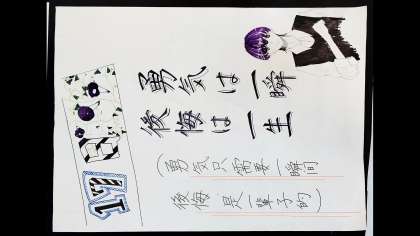 勇気は一瞬
後悔は一生
(勇気只需要一瞬間
後悔是一輩子的)
17